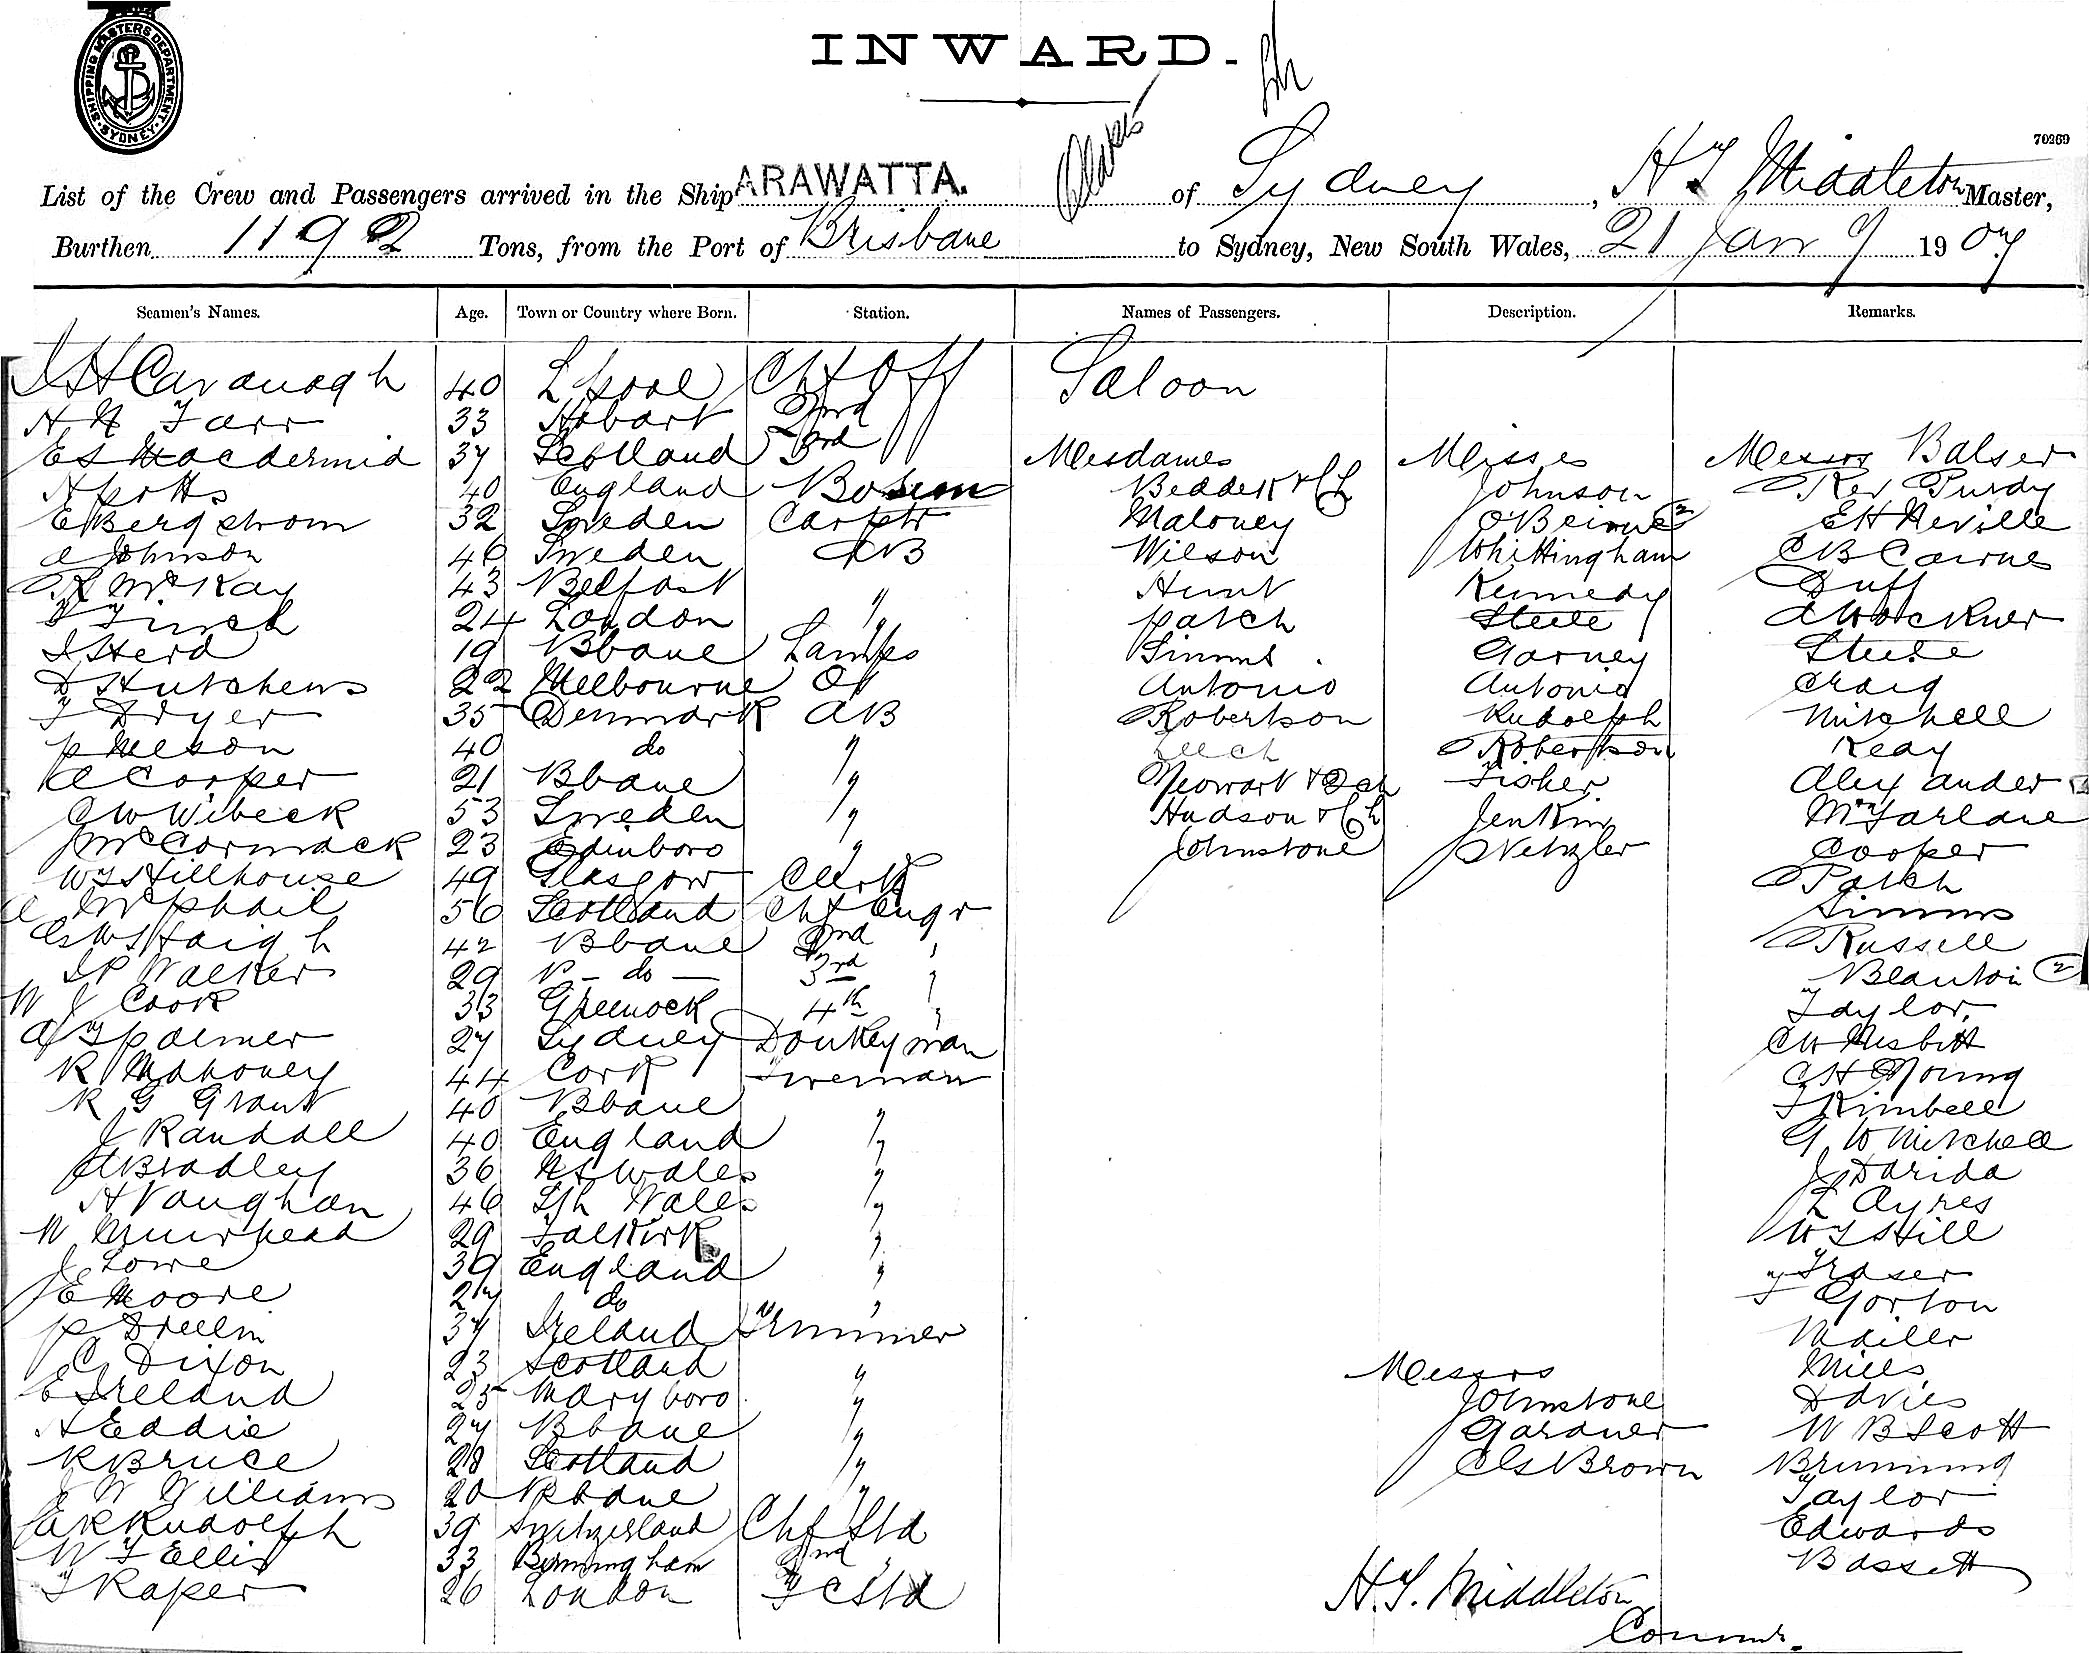 SHIPPING MASTERS DEPARTMENT
SYDNEY
INWARD.
70269
List of the Crew and Passengers arrived in the Ship ARAWATTA. of Sydney, H T Middleton Master,
Burthen 1192 Tons, from the Port of Brisbane to Sydney, New South Wales, 21 Jany 1907
Seamen's Names. Age. Town or Country where Born. Station. Names of Passengers. Description. Remarks.
J H Cavanagh 40 L'pool Chf Off Saloon
H N Farr 33 Hobart 2nd
E S Macdermid 37 Scotland 3rd Mesdames Misses Messrs Balser
A Potts 40 England Bosun Beddek & Ch Johnson Rev Purdy
E Bergstrom 32 Sweden Carptr Maloney O'Beirne 2 E H Neville
A Johnson 46 Sweden AB Wilson Whittingham C B Cairns
R McKay 43 Belfast " Hunt Kennedy Duff
F Finch 24 London " Patch Steele
J Herd 19 Bbane Lamps Simms Garney Steele
D Hutchens 22 Melbourne OS Antonio Antonio Craig
F Dryer 35 Denmark AB Robertson Rudolph Mitchell
P Nelson 40 do " Leech Robertson Keay
A Cooper 21 Bbane " Fisher Alexander 2
C W Wibeck 53 Sweden " Hudson & Ch Jenkin McFarlane
J McCormack 23 Edinboro " Johnstone Wetzler Cooper
W S Hillhouse 49 Glasgow Clerk Patch
A McPhail 56 Scotland Chf Engr Simms
G W S Haigh 42 Bbane 2nd " Russell
J P Walker 29 - do - 3rd " Blanton 2
W J Cook 33 Greenock 4th " Taylor
A T Palmer 27 Sydney Donkeyman C W Nisbitt
R Mahoney 44 Cork Fireman C H Young
R G Grant 40 Bbane " F Kimbell
J Randall 40 England " G W Mitchell
A Bradley 36 N S Wales " J Darida
H Vaughan 46 Sth Wales " L Ayres
W Muirhead 29 Falkirk " W S Hill
J Lowe 39 England " Fraser
J E Moore 27 do " T Gorton
P Drelin 37 Ireland Trimmer Mailler
C Dixon 23 Scotland " Messrs Mills
E Ireland 25 Maryboro " Johnstone Davies
H Eddie 27 Bbane " Gardner W B Scott
R Bruce 28 Scotland " C S Brown Brunning
J W Williams 20 Bbane " Taylor
A R Rudolph 39 Switzerland Chf Std Edwards
W T Ellis 33 Birmingham 2nd " Bassett
T Raper 26 London F C Std
H. T. Middleton
Commr.